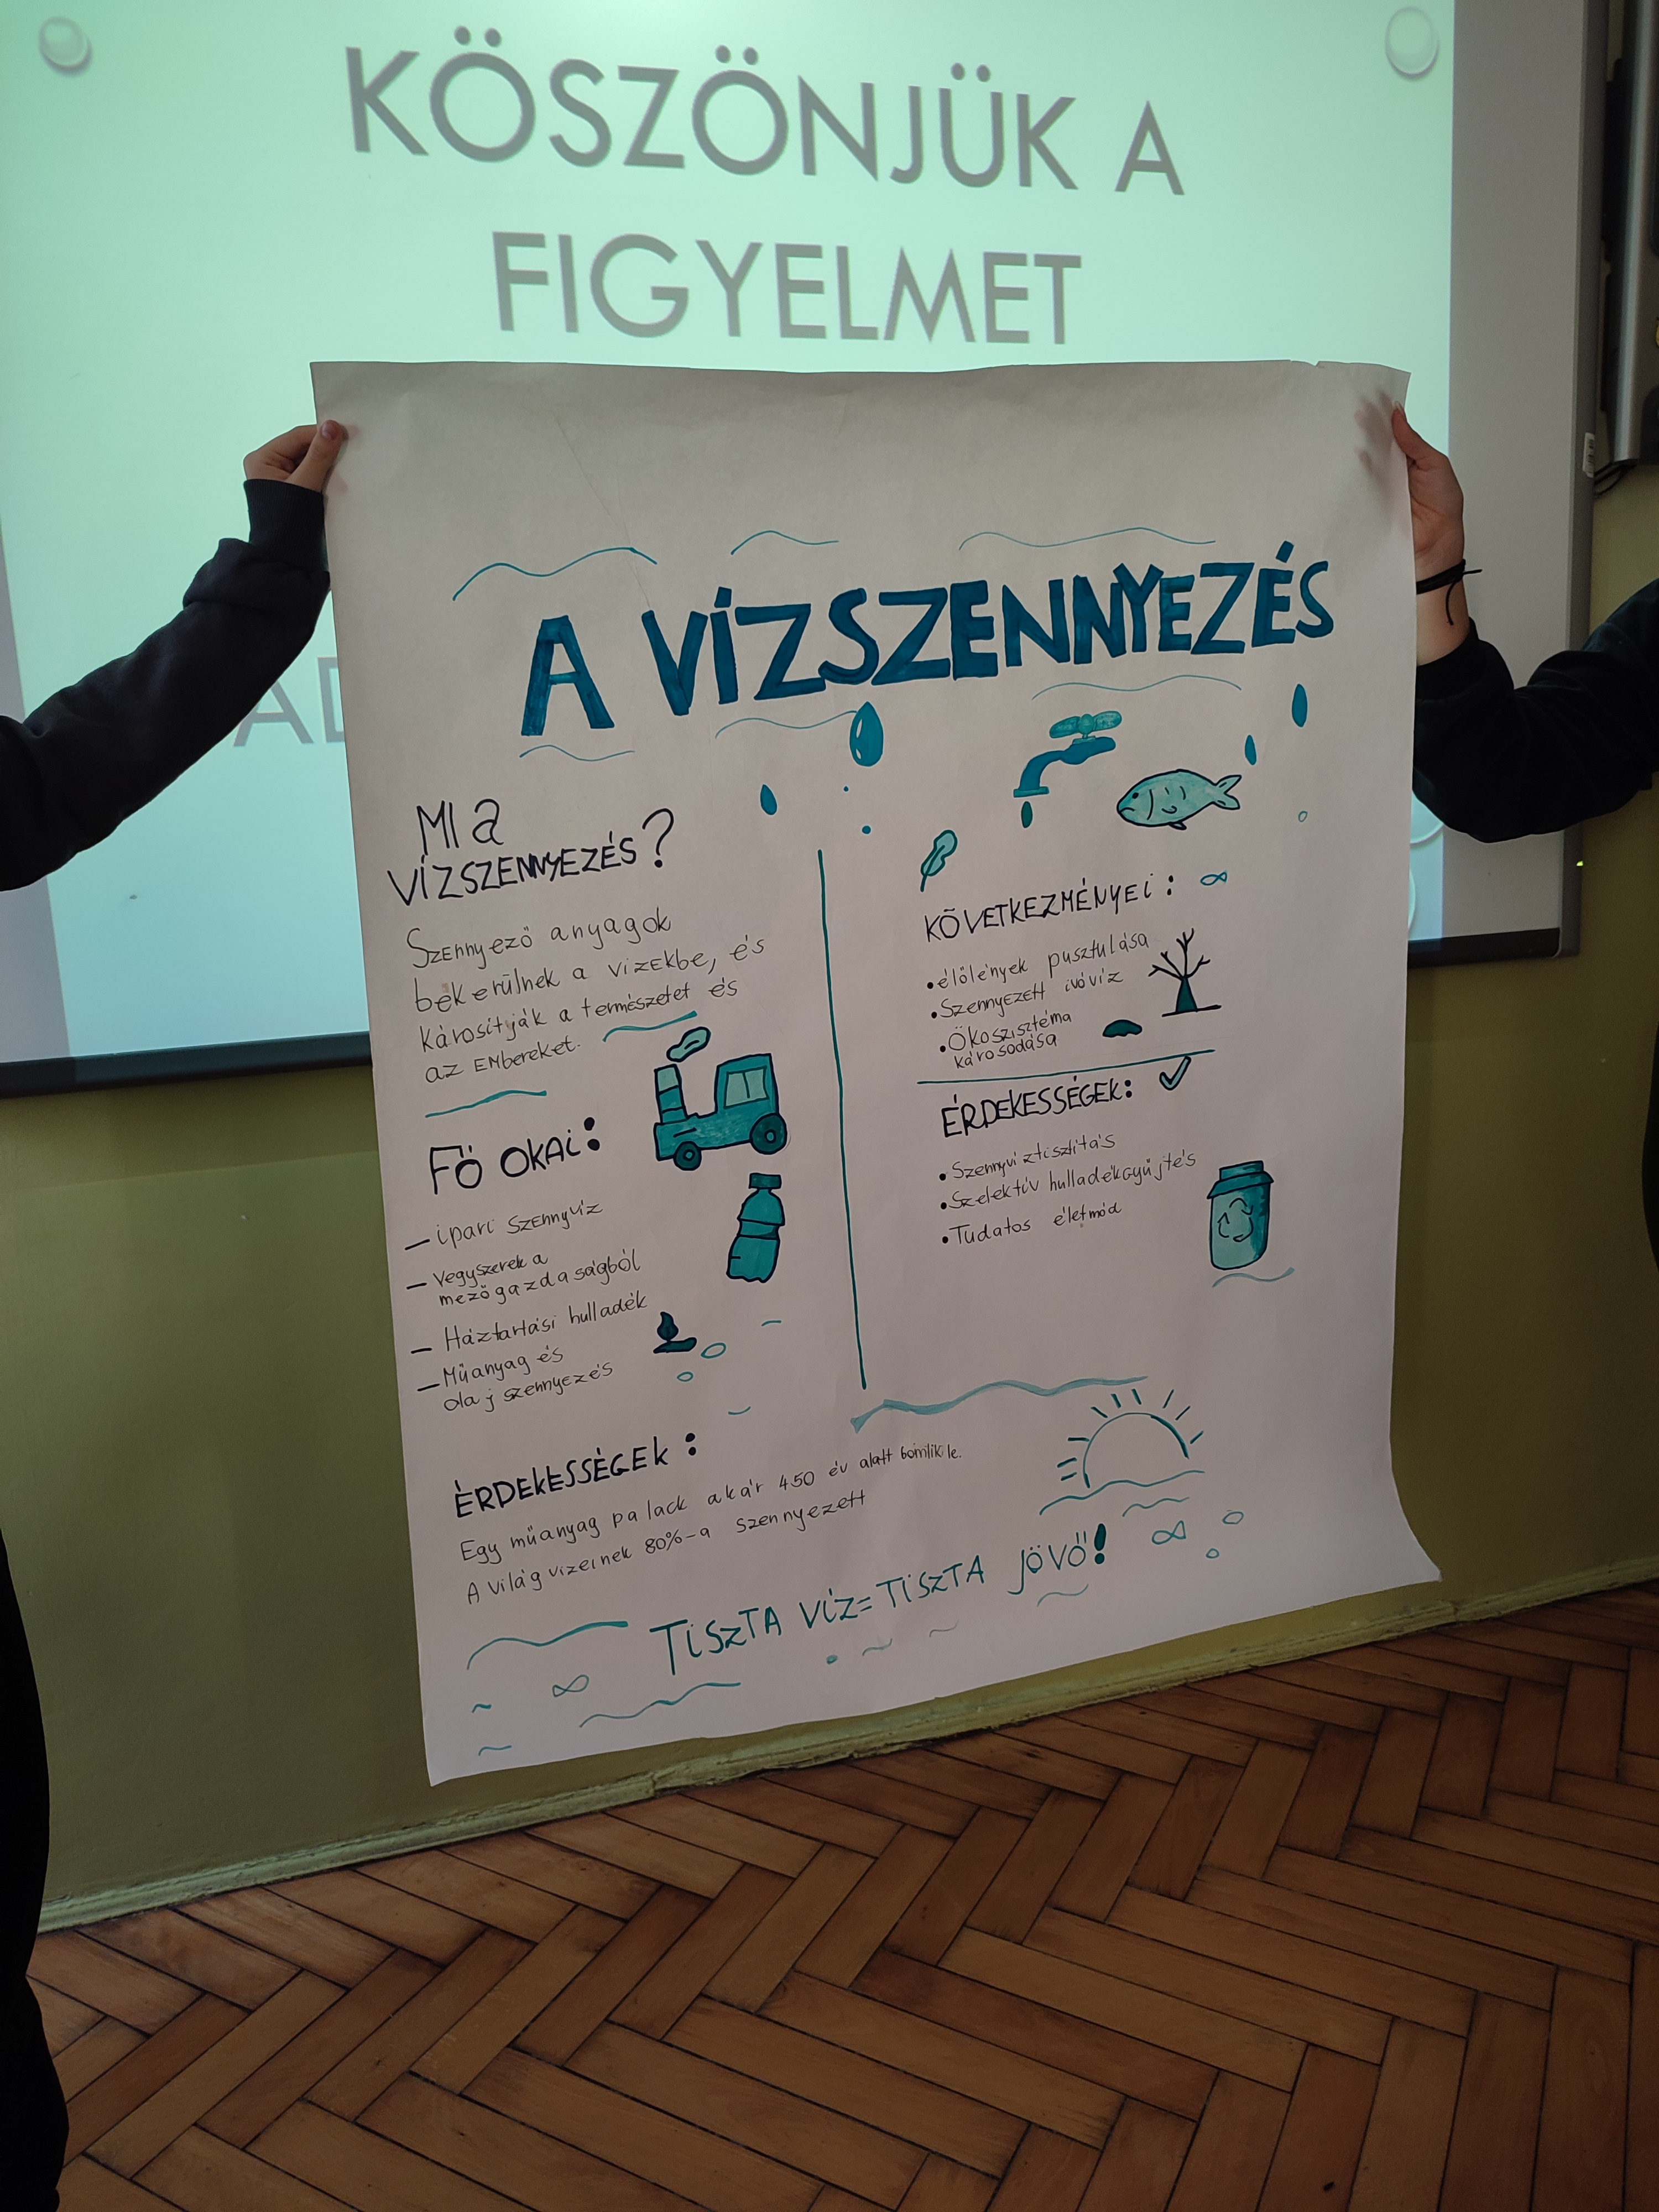 KÖSZÖNJÜK A
FIGYELMET
AD
A VÍZSZENNYEZÉS
MI a
VÍZSZENNYEZÉS?
Szennyező anyagok
bekerülnek a vizekbe, és
károsítják a természetet és
az embereket.
Fő okai:
– ipari szennyvíz
– Vegyszerek a
mezőgazdaságból
– Háztartási hulladék
– Műanyag és
olaj szennyezés
ÉRDEKESSÉGEK:
Egy műanyag palack akár 450 év alatt bomlik le.
A világ vizeinek 80%-a szennyezett
KÖVETKEZMÉNYEI:
• élőlények pusztulása
• Szennyezett ivóvíz
• Ökoszisztéma
károsodása
ÉRDEKESSÉGEK:
• Szennyvíztisztítás
• Szelektív hulladékgyűjtés
• Tudatos életmód
TISZTA VÍZ=TISZTA JÖVŐ!